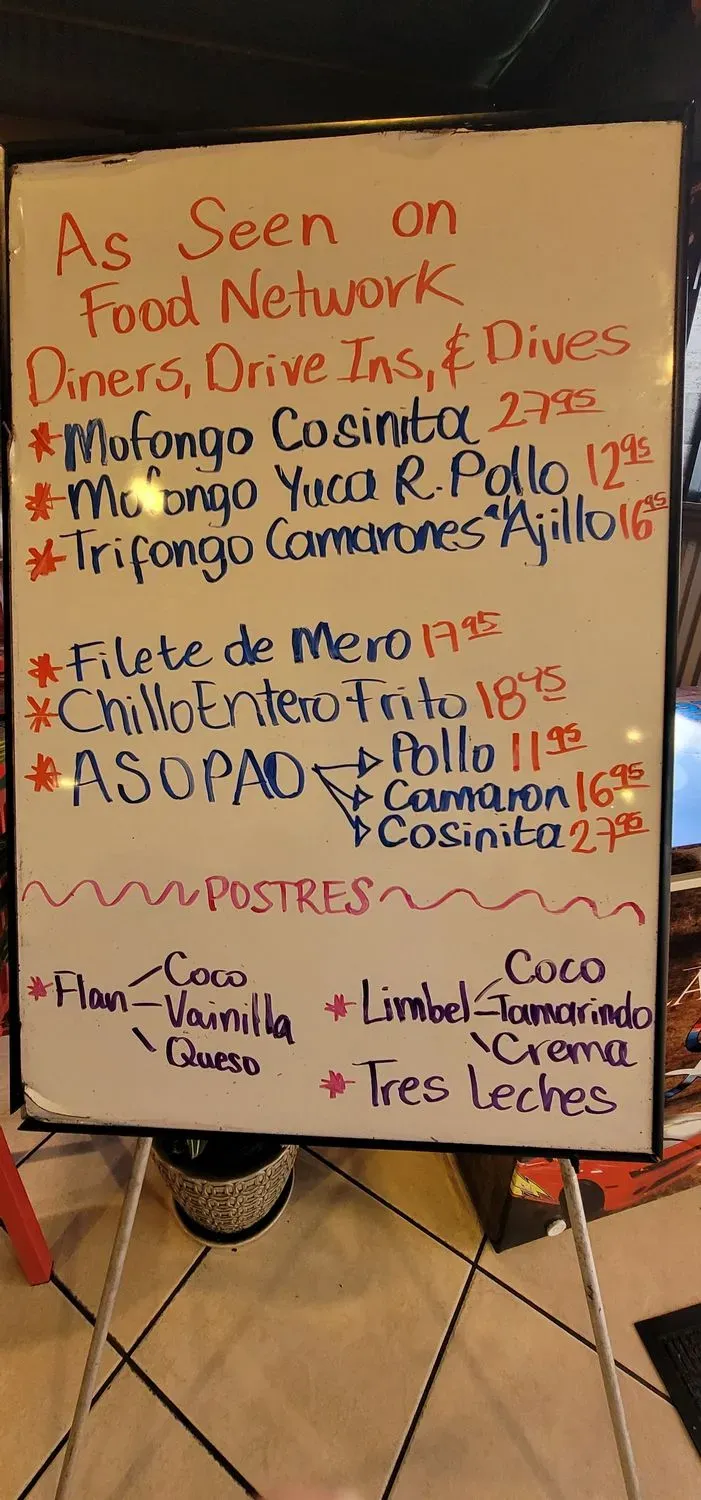 As Seen on
Food Network
Diners, Drive Ins, & Dives
* Mofongo Cosinita 27.95
* Mofongo Yuca R. Pollo 12.95
* Trifongo Camarones "Ajillo 16.95
* Filete de Mero 17.95
* Chillo Entero Frito 18.95
* ASOPAO Pollo 11.95
Camaron 16.95
Cosinita 27.95
POSTRES
* Flan Coco
Vainilla
Queso
* Limbel Coco
Tamarindo
Crema
* Tres Leches